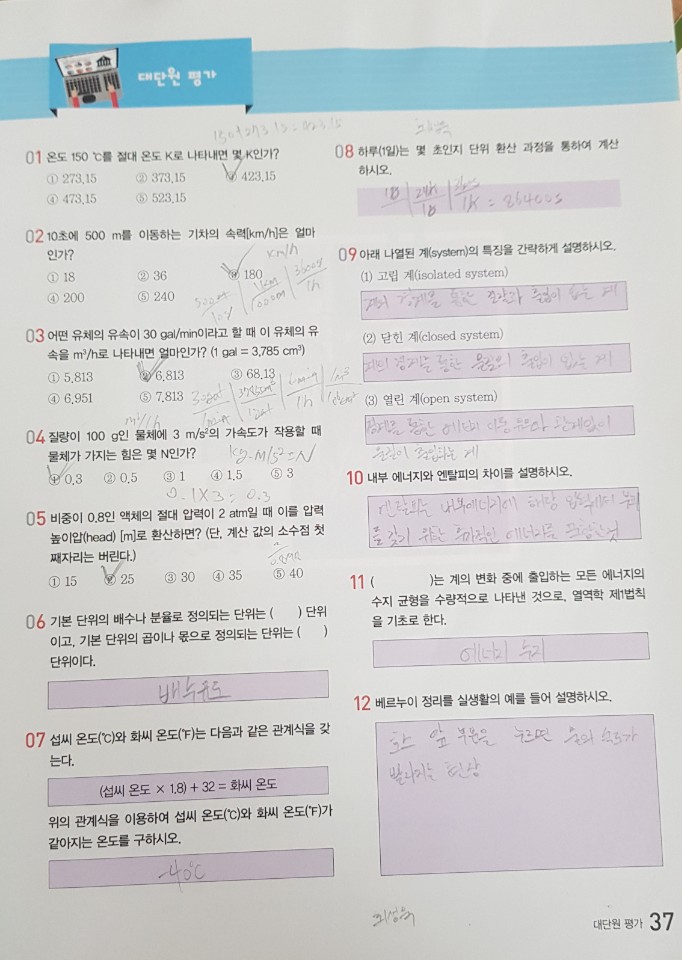 대단원 평가
150+273.15=423.15
01 온도 150 ℃를 절대 온도 K로 나타내면 몇 K인가?
① 273.15 ② 373.15 ③ 423.15
④ 473.15 ⑤ 523.15
02 10초에 500 m를 이동하는 기차의 속력[km/h]은 얼마
인가?
km/h
① 18 ② 36 ③ 180
④ 200 ⑤ 240
500m 1km 3600s
10s 1000m 1h
03 어떤 유체의 유속이 30 gal/min이라고 할 때 이 유체의 유
속을 m³/h로 나타내면 얼마인가? (1 gal = 3,785 cm³)
① 5.813 ② 6.813 ③ 68.13
④ 6.951 ⑤ 7.813
m³/h
04 질량이 100 g인 물체에 3 m/s²의 가속도가 작용할 때
물체가 가지는 힘은 몇 N인가?
kg·m/s²=N
① 0.3 ② 0.5 ③ 1 ④ 1.5 ⑤ 3
0.1X3=0.3
05 비중이 0.8인 액체의 절대 압력이 2 atm일 때 이를 압력
높이압(head) [m]로 환산하면? (단, 계산 값의 소수점 첫
째자리는 버린다.)
① 15 ② 25 ③ 30 ④ 35 ⑤ 40
06 기본 단위의 배수나 분율로 정의되는 단위는 ( ) 단위
이고, 기본 단위의 곱이나 몫으로 정의되는 단위는 ( )
단위이다.
배수유도
07 섭씨 온도(℃)와 화씨 온도(℉)는 다음과 같은 관계식을 갖
는다.
(섭씨 온도 × 1.8) + 32 = 화씨 온도
위의 관계식을 이용하여 섭씨 온도(℃)와 화씨 온도(℉)가
같아지는 온도를 구하시오.
-40℃
08 하루(1일)는 몇 초인지 단위 환산 과정을 통하여 계산
하시오.
= 86400s
09 아래 나열된 계(system)의 특징을 간략하게 설명하시오.
(1) 고립 계(isolated system)
계의 경계를 통한 출입이 없는 계
(2) 닫힌 계(closed system)
계의 경계를 통한 물질의 출입이 없는 계
(3) 열린 계(open system)
경계를 통한 에너지 이동 관계없이
물질이 출입되는 계
10 내부 에너지와 엔탈피의 차이를 설명하시오.
엔탈피는 내부에너지에 해당 압력에서 부피
를 갖기 위한 추가적인 에너지를 포함한것
11 ( )는 계의 변화 중에 출입하는 모든 에너지의
수지 균형을 수량적으로 나타낸 것으로, 열역학 제1법칙
을 기초로 한다.
에너지 수지
12 베르누이 정리를 실생활의 예를 들어 설명하시오.
호스 앞 부분을 누르면 물의 속도가
빨라지는 현상
대단원 평가 37